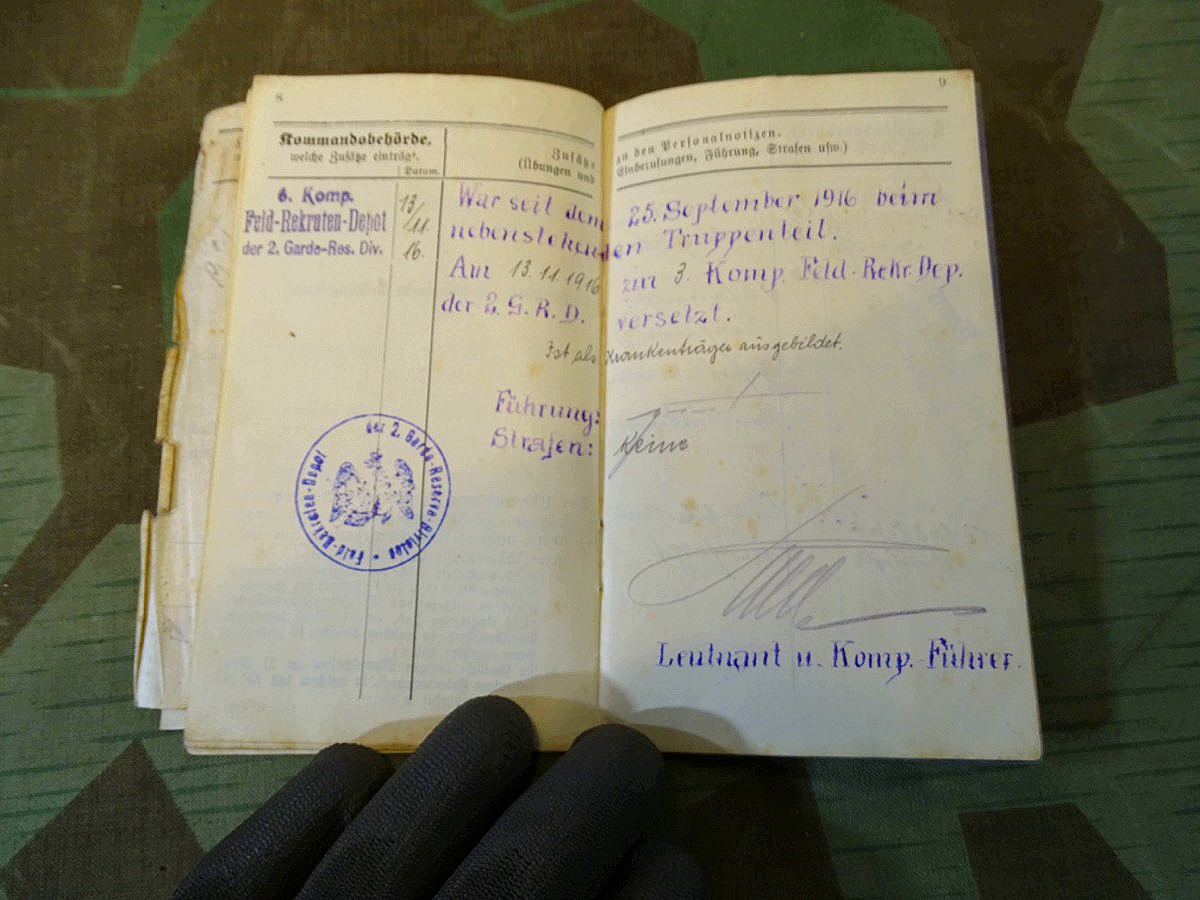 8
9
Kommandobehörde,
welche Zusätze einträgt.
Datum.
Zusätze zu den Personalnotizen.
(Übungen und Einberufungen, Führung, Strafen usw.)
6. Komp.
Feld-Rekruten-Depot
der 2. Garde-Res. Div.
13/
11.
16.
War seit dem 25. September 1916 beim
nebenstehenden Truppenteil.
Am 13.11.1916 zur 3. Komp. Feld-Rekr. Dep.
der 2. G. R. D. versetzt.
Ist als Krankenträger ausgebildet.
Führung:
Strafen: Keine
Feld-Rekruten-Depot der 2. Garde-Reserve-Division
Leutnant u. Komp.-Führer.